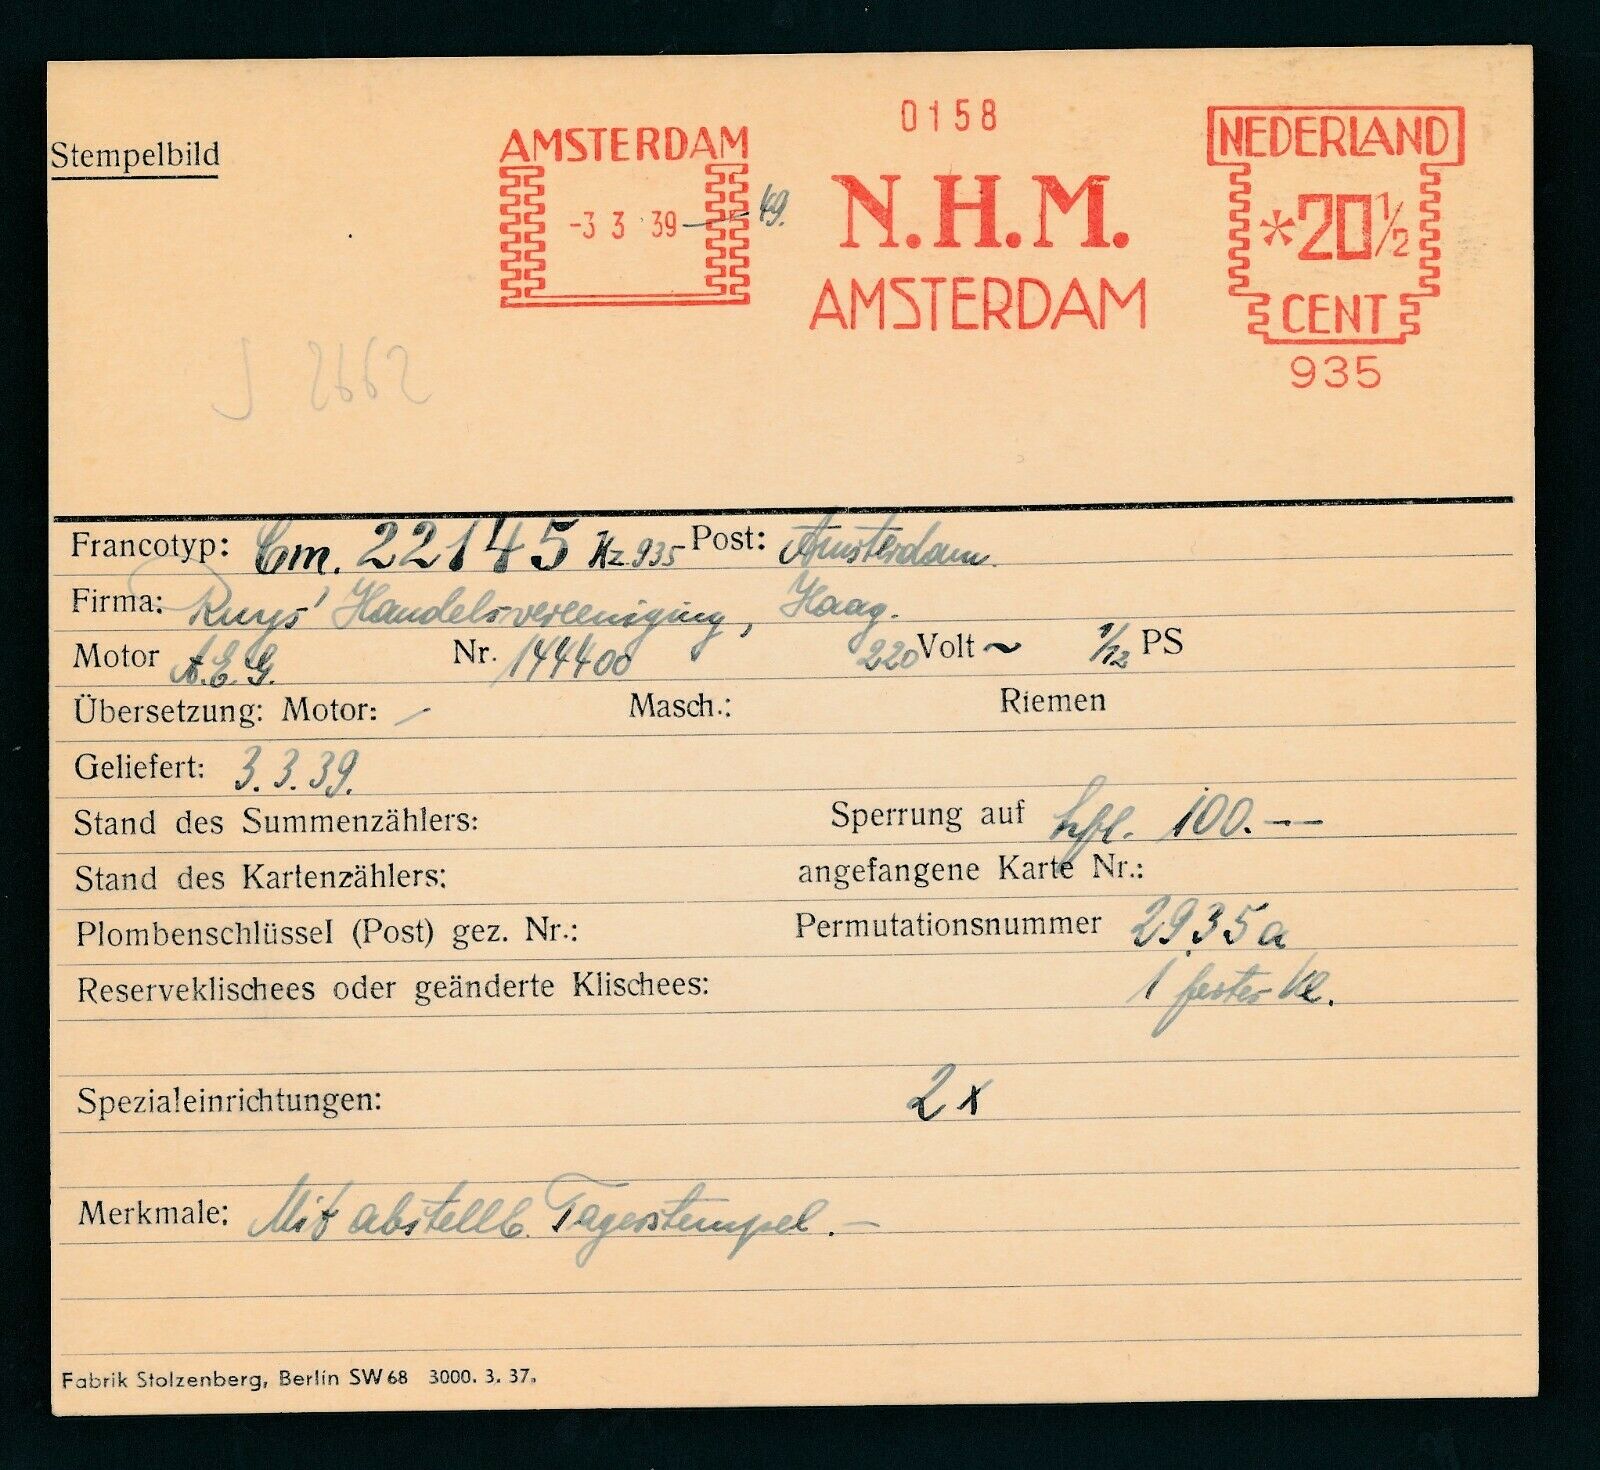 0158
Stempelbild
AMSTERDAM
-3 3 39 — 49.
N.H.M.
AMSTERDAM
NEDERLAND
*20½
CENT
935
J 2662
Francotyp: Cm. 22145 Kz. 935 Post: Amsterdam.
Firma: Ruys' Handelsvereeniging, Haag.
Motor A.E.G. Nr. 144400 220 Volt ~ 1/12 PS
Übersetzung: Motor: — Masch.: Riemen
Geliefert: 3.3.39.
Stand des Summenzählers: Sperrung auf hfl. 100.—
Stand des Kartenzählers: angefangene Karte Nr.:
Plombenschlüssel (Post) gez. Nr.: Permutationsnummer 2935a
Reserveklischees oder geänderte Klischees: 1 fester Kl.
Spezialeinrichtungen: 2x
Merkmale: Mit abstellb. Tagesstempel.—
Fabrik Stolzenberg, Berlin SW 68 3000. 3. 37.